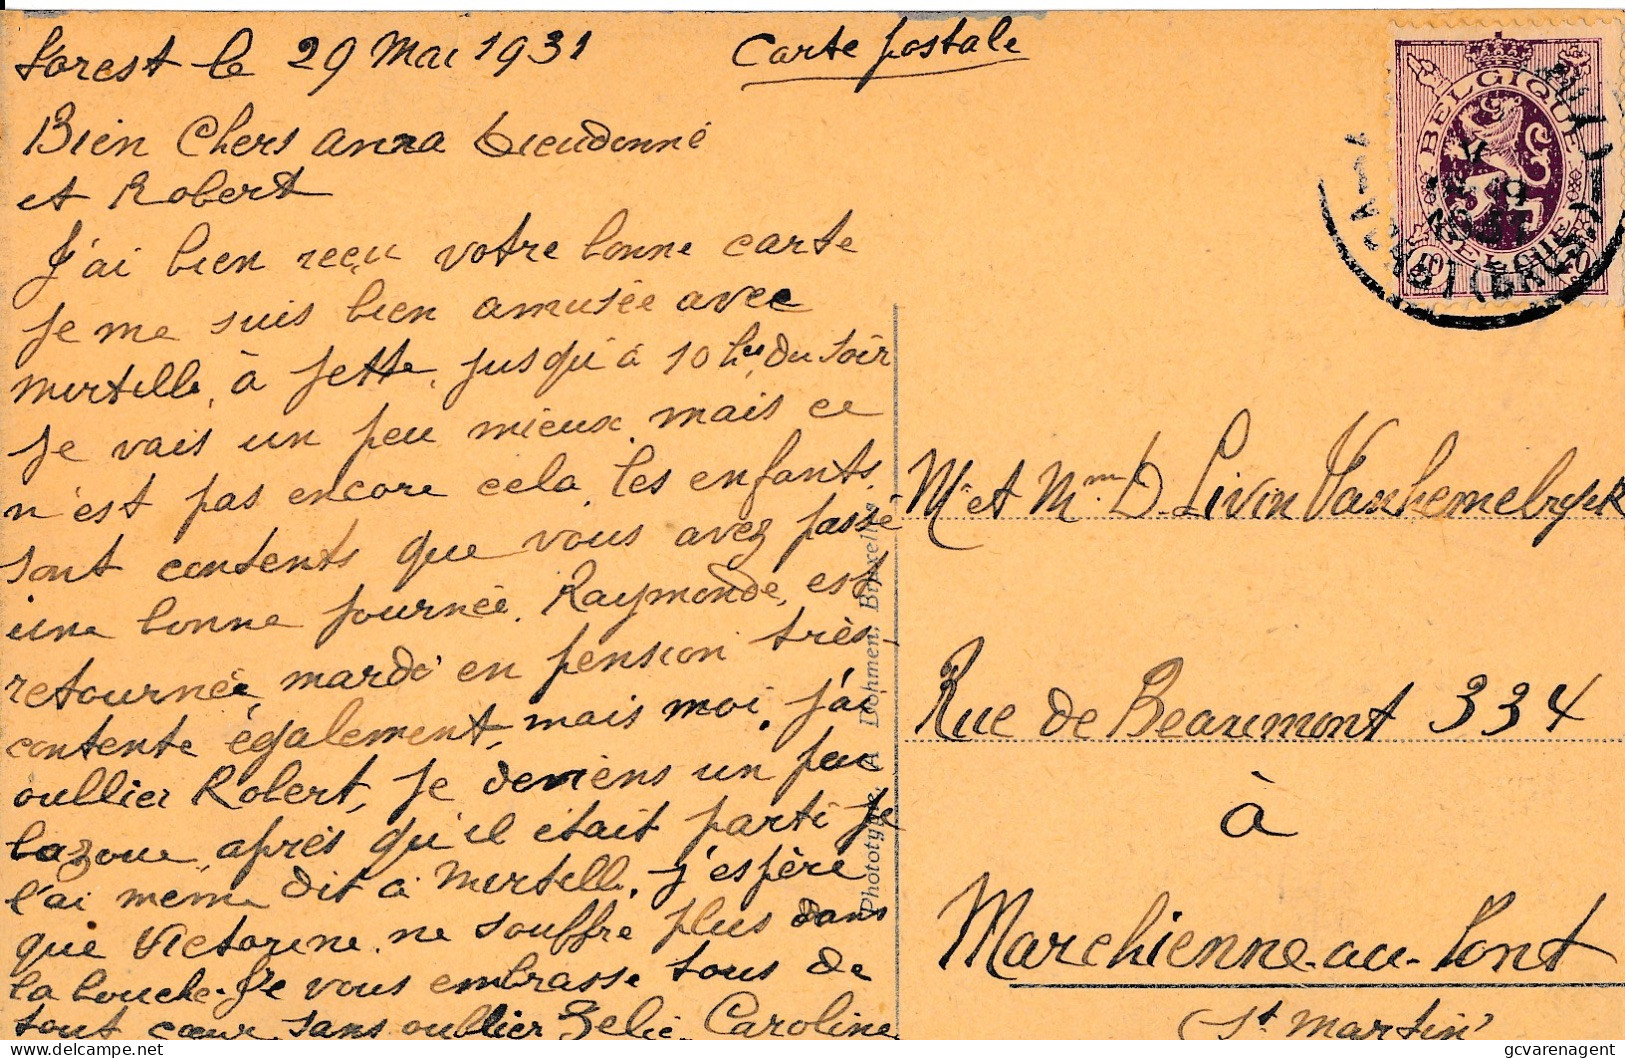 Forest le 29 Mai 1931
Carte postale
Bien Chers anna Dieudonné
et Robert
J'ai bien reçu votre bonne carte
Je me suis bien amusée avec
Mirtelle, à Jette, jusqu'à 10 hrs du soir
Je vais un peu mieux mais ce
n'est pas encore cela, les enfants
sont contents que vous avez passé
une bonne journée. Raymonde, est
retournée, mardi en pension très
contente également, mais moi, j'ai
oullier Robert, Je deviens un peu
après qu'il était parti je
l'ai même dit à Mirtelle, j'espère
que Victorine ne souffre plus dans
la bouche. Je vous embrasse tous de
tout cœur, sans oullier Zelie. Caroline
Phototypie A. Dohmen, Bruxelles
BELGIQUE
BELGIE
Mr et Mme D. Livin Vanhemelryck
Rue de Beaumont 334
à
Marchienne-au-Pont
(St Martin)
gcvarenagent